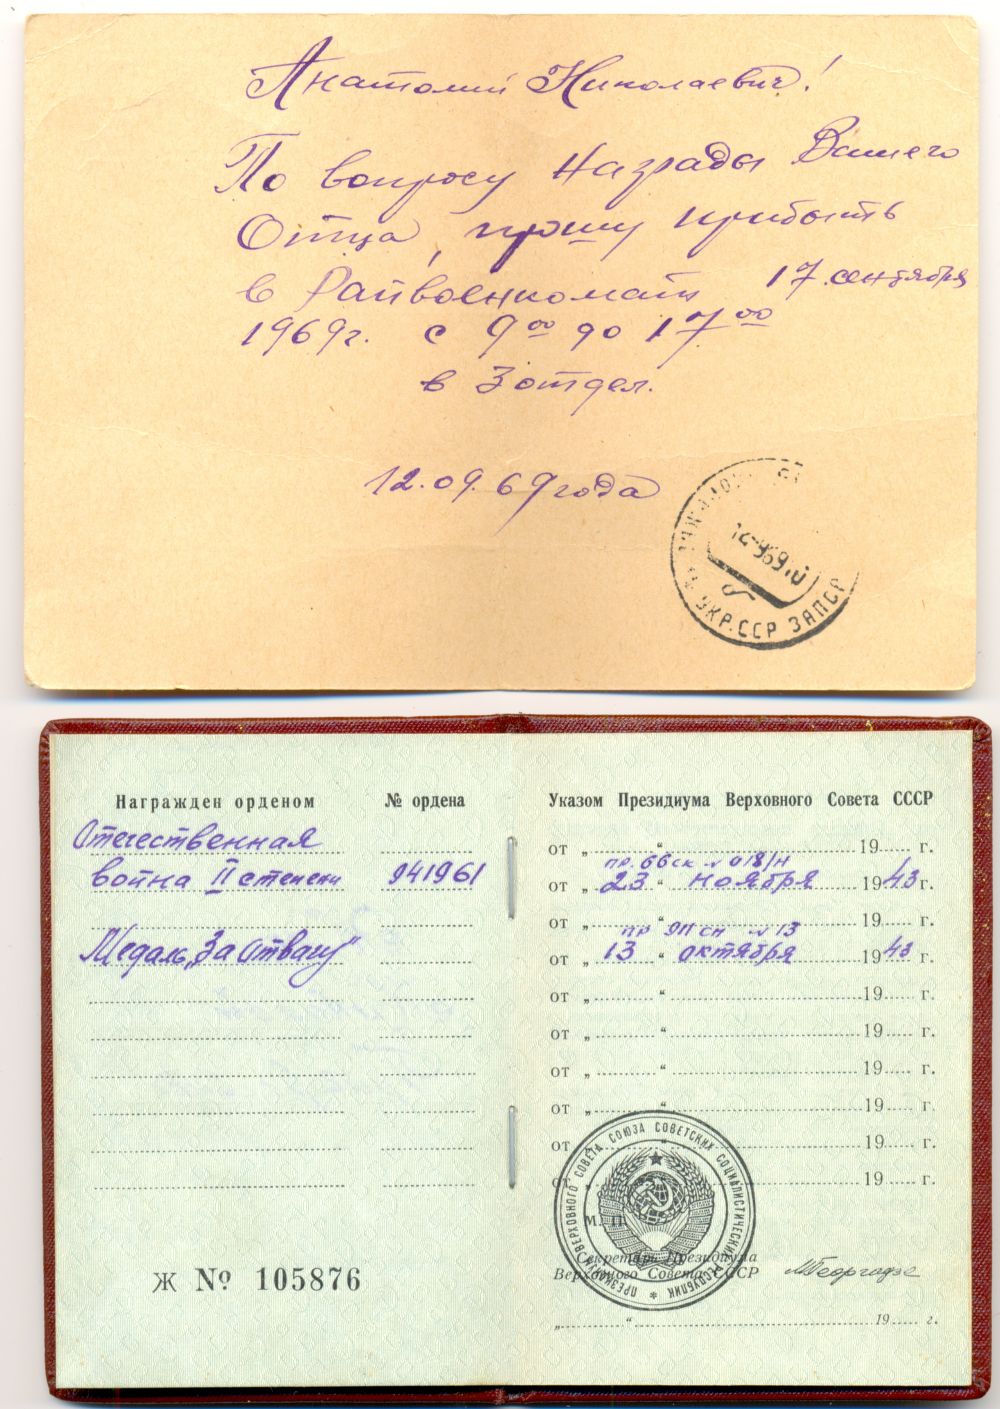 Анатолий Николаевич!
По вопросу награды Вашего
Отца, прошу прибыть
в Райвоенкомат 17 сентября
1969г. с 9⁰⁰ до 17⁰⁰
в 3 отдел.
12.09.69 года
12-969.10
УКР.ССР ЗАПОР
Награжден орденом
№ ордена
Отечественная
война II степени 941961
Медаль „За Отвагу"
Ж № 105876
Указом Президиума Верховного Совета СССР
от „ “ 19 г.
пр. 66 ск № 018/н
от „ 23 “ ноября 1943 г.
от „ “ 19 г.
№ 13
от „ 13 “ октября 1943 г.
от „ “ 19 г.
от „ “ 19 г.
от „ “ 19 г.
от „ “ 19 г.
от „ “ 19 г.
от „ “ 19 г.
ПРЕЗИДИУМ ВЕРХОВНОГО СОВЕТА СОЮЗА СОВЕТСКИХ СОЦИАЛИСТИЧЕСКИХ РЕСПУБЛИК
М. П.
Секретарь Президиума
Верховного Совета СССР МГеоргадзе
„ “ 19 г.